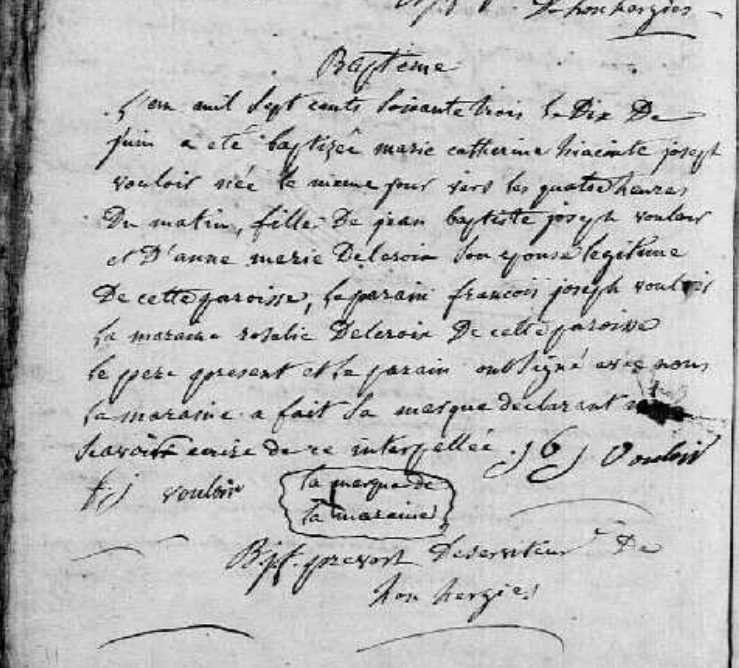 De honhergies
Baptême
L'an mil sept cents soixante trois le Dix De
juin a eté baptizée marie catherine hiacinte joseph
vouloir née le meme jour vers les quatre heures
Du matin, fille De jean baptiste joseph vouloir
et D'anne marie Delcroix son epouse legitime
De cette paroisse, le parain francois joseph vouloir
la maraine rosalie Delcroix De cette paroisse
le pere present et le parain ont signé avec nous
la maraine a fait sa marque declarant
scavoir ecrire de ce interpellée. J b J Vouloir
f j vouloir
la marque de
la maraine
Bpt. prevost Deserviteur De
hon hergies